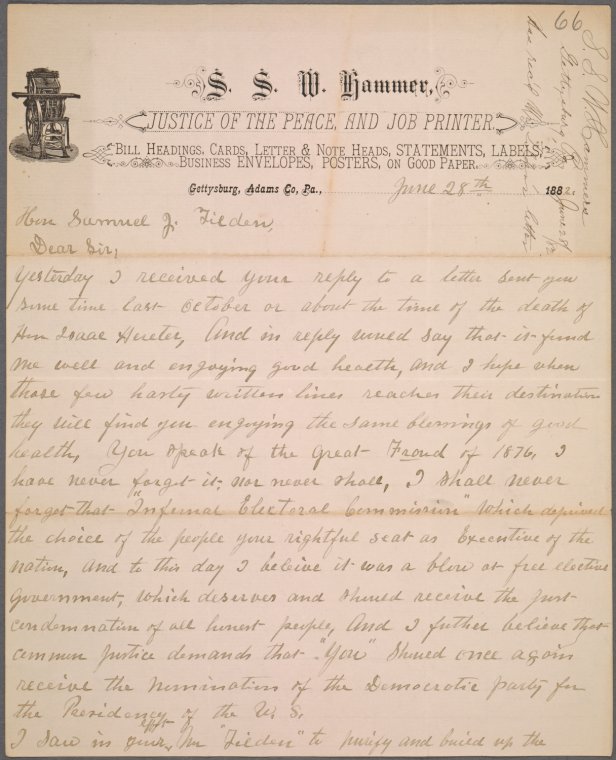 66
S. S. W. Hammers
Gettysburg, Pa
June 28
letter
S. S. W. Hammer,
JUSTICE OF THE PEACE, AND JOB PRINTER.
BILL HEADINGS, CARDS, LETTER & NOTE HEADS, STATEMENTS, LABELS,
BUSINESS ENVELOPES, POSTERS, ON GOOD PAPER.
Gettysburg, Adams Co, Pa., June 28th 1882.
Hon Samuel J. Tilden,
Dear Sir,
Yesterday I received your reply to a letter sent you
some time last October or about the time of the death of
Hon Isaac Hereter, And in reply would say that it fund
me well and engoying good health, and I hope when
those few hasty written lines reaches their destination
they will find you engoying the same blessings of good
health, You speak of the great Fraud of 1876, I
have never forgot it, nor never shall, I shall never
forget that "Infernal Electoral Commission" which deprived
the choice of the people your rightful seat as Executive of the
nation, and to this day I beleive it was a blow at free elective
government, which deserves and should receive the just
condemnation of all honest people, And I futher believe that
common justice demands that "You" should once again
receive the nomination of the Democratic party for
the Presidency of the U. S.
I saw in your effort Mr "Tilden" to purify and build up the